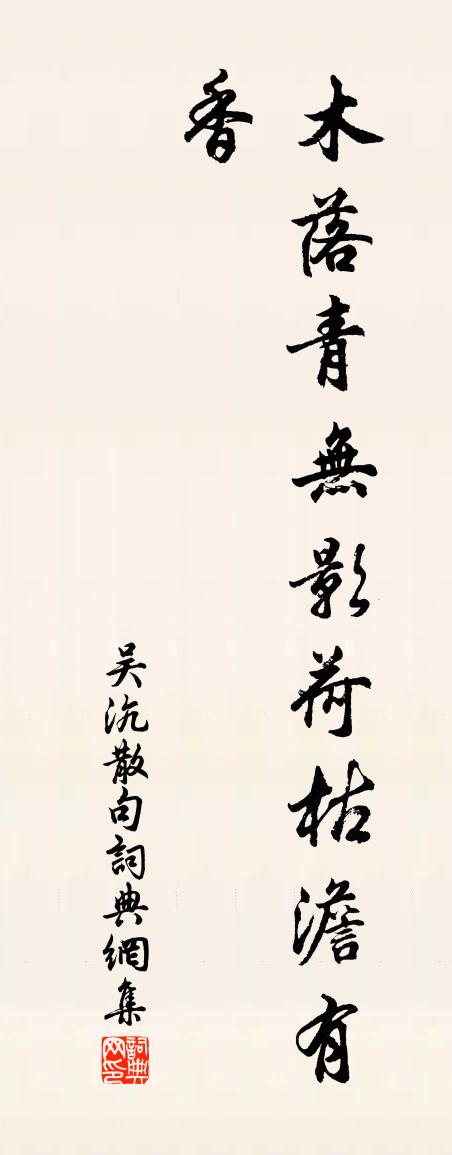 木落青無影荷枯澹有
香
吴沆散句詞典網集
詞典网印